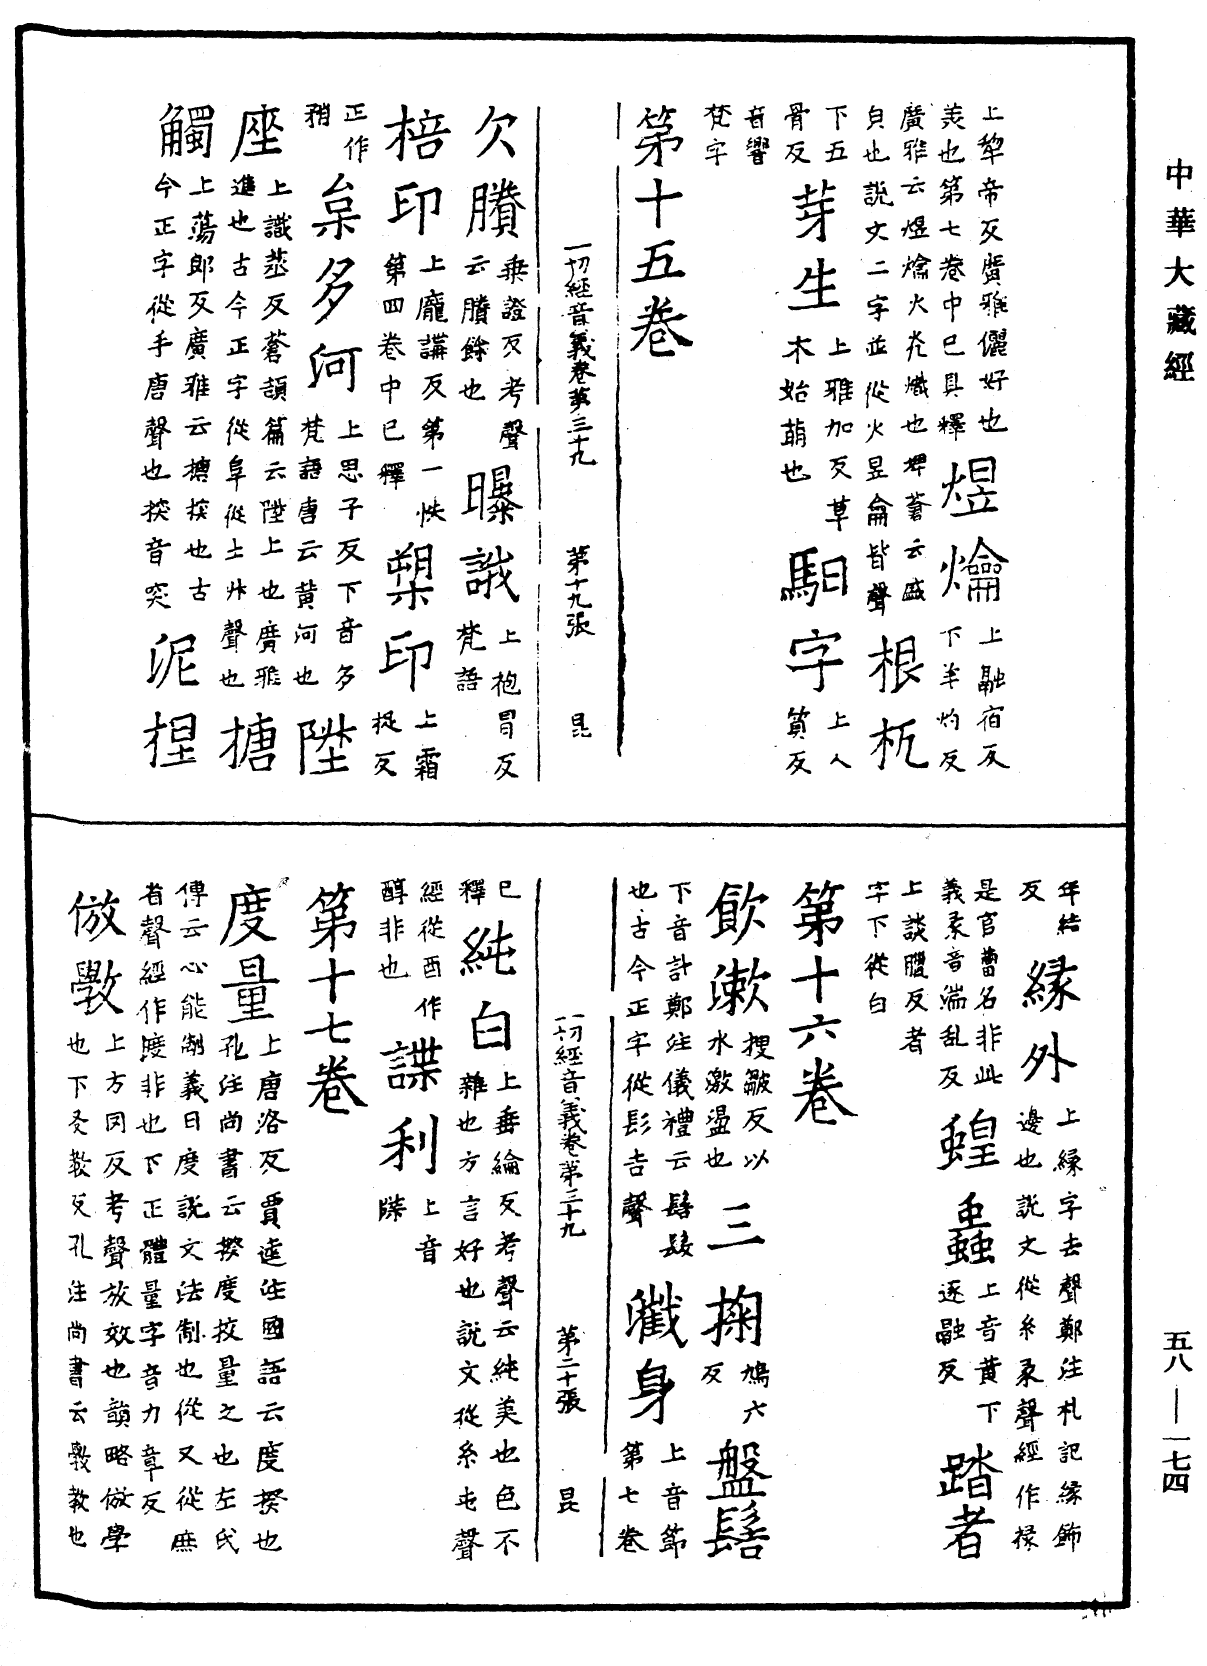 中華大藏經
上犂帝反廣雅儷好也
美也第七卷中已具釋 煜爚 上融宿反
廣雅云煜爚火光熾也埤蒼云盛 下羊灼反
皃也說文二字並從火昱龠皆聲 根杌
下五
骨反 芽生 上雅加反草
木始萌也 馹字 上人
質反
音響
梵字
第十五卷
一切經音義卷第三十九 第十九張 昆
欠賸 乗證反考聲
云賸餘也 曝誐 上袍冒反
梵語
棓印 上龐講反第一帙
第四卷中已釋 槊印 上霜
捉反
正作
矟 枲多河 上思子反下音多
梵語唐云黄河也 陞
座 上識蒸反蒼頡篇云陞上也廣雅
進也古今正字從阜從土升聲也 搪
觸 上蕩郎反廣雅云搪揬也古
今正字從手唐聲也揬音突 泥揑
年結
反 緣外 上緣字去聲鄭注札記緣飾
邊也說文從糸彖聲經作掾
是官曹名非此
義彖音湍乱反 蝗蟲 上音黄下
逐融反 踏者
上談臘反者
字下從白
第十六卷
飲漱 搜皺反以
水激盪也 三掬 鳩六
反 盤髻
下音計鄭注儀禮云髻髮
也古今正字從髟吉聲 瀸身 上音節
第七卷
一切經音義卷第三十九 第二十張 昆
已
釋 純白 上垂綸反考聲云純美也色不
雜也方言好也說文從糸屯聲
經從酉作
醇非也 諜利 上音
牒
第十七卷
度量 上唐洛反賈逵注國語云度揆也
孔注尚書云揆度校量之也左氏
傳云心能制義曰度說文法制也從又從庶
省聲經作度非也下正體量字音力章反
倣斅 上方罔反考聲放效也韻略倣學
也下爻教反孔注尚書云斅教也
五八—一七四